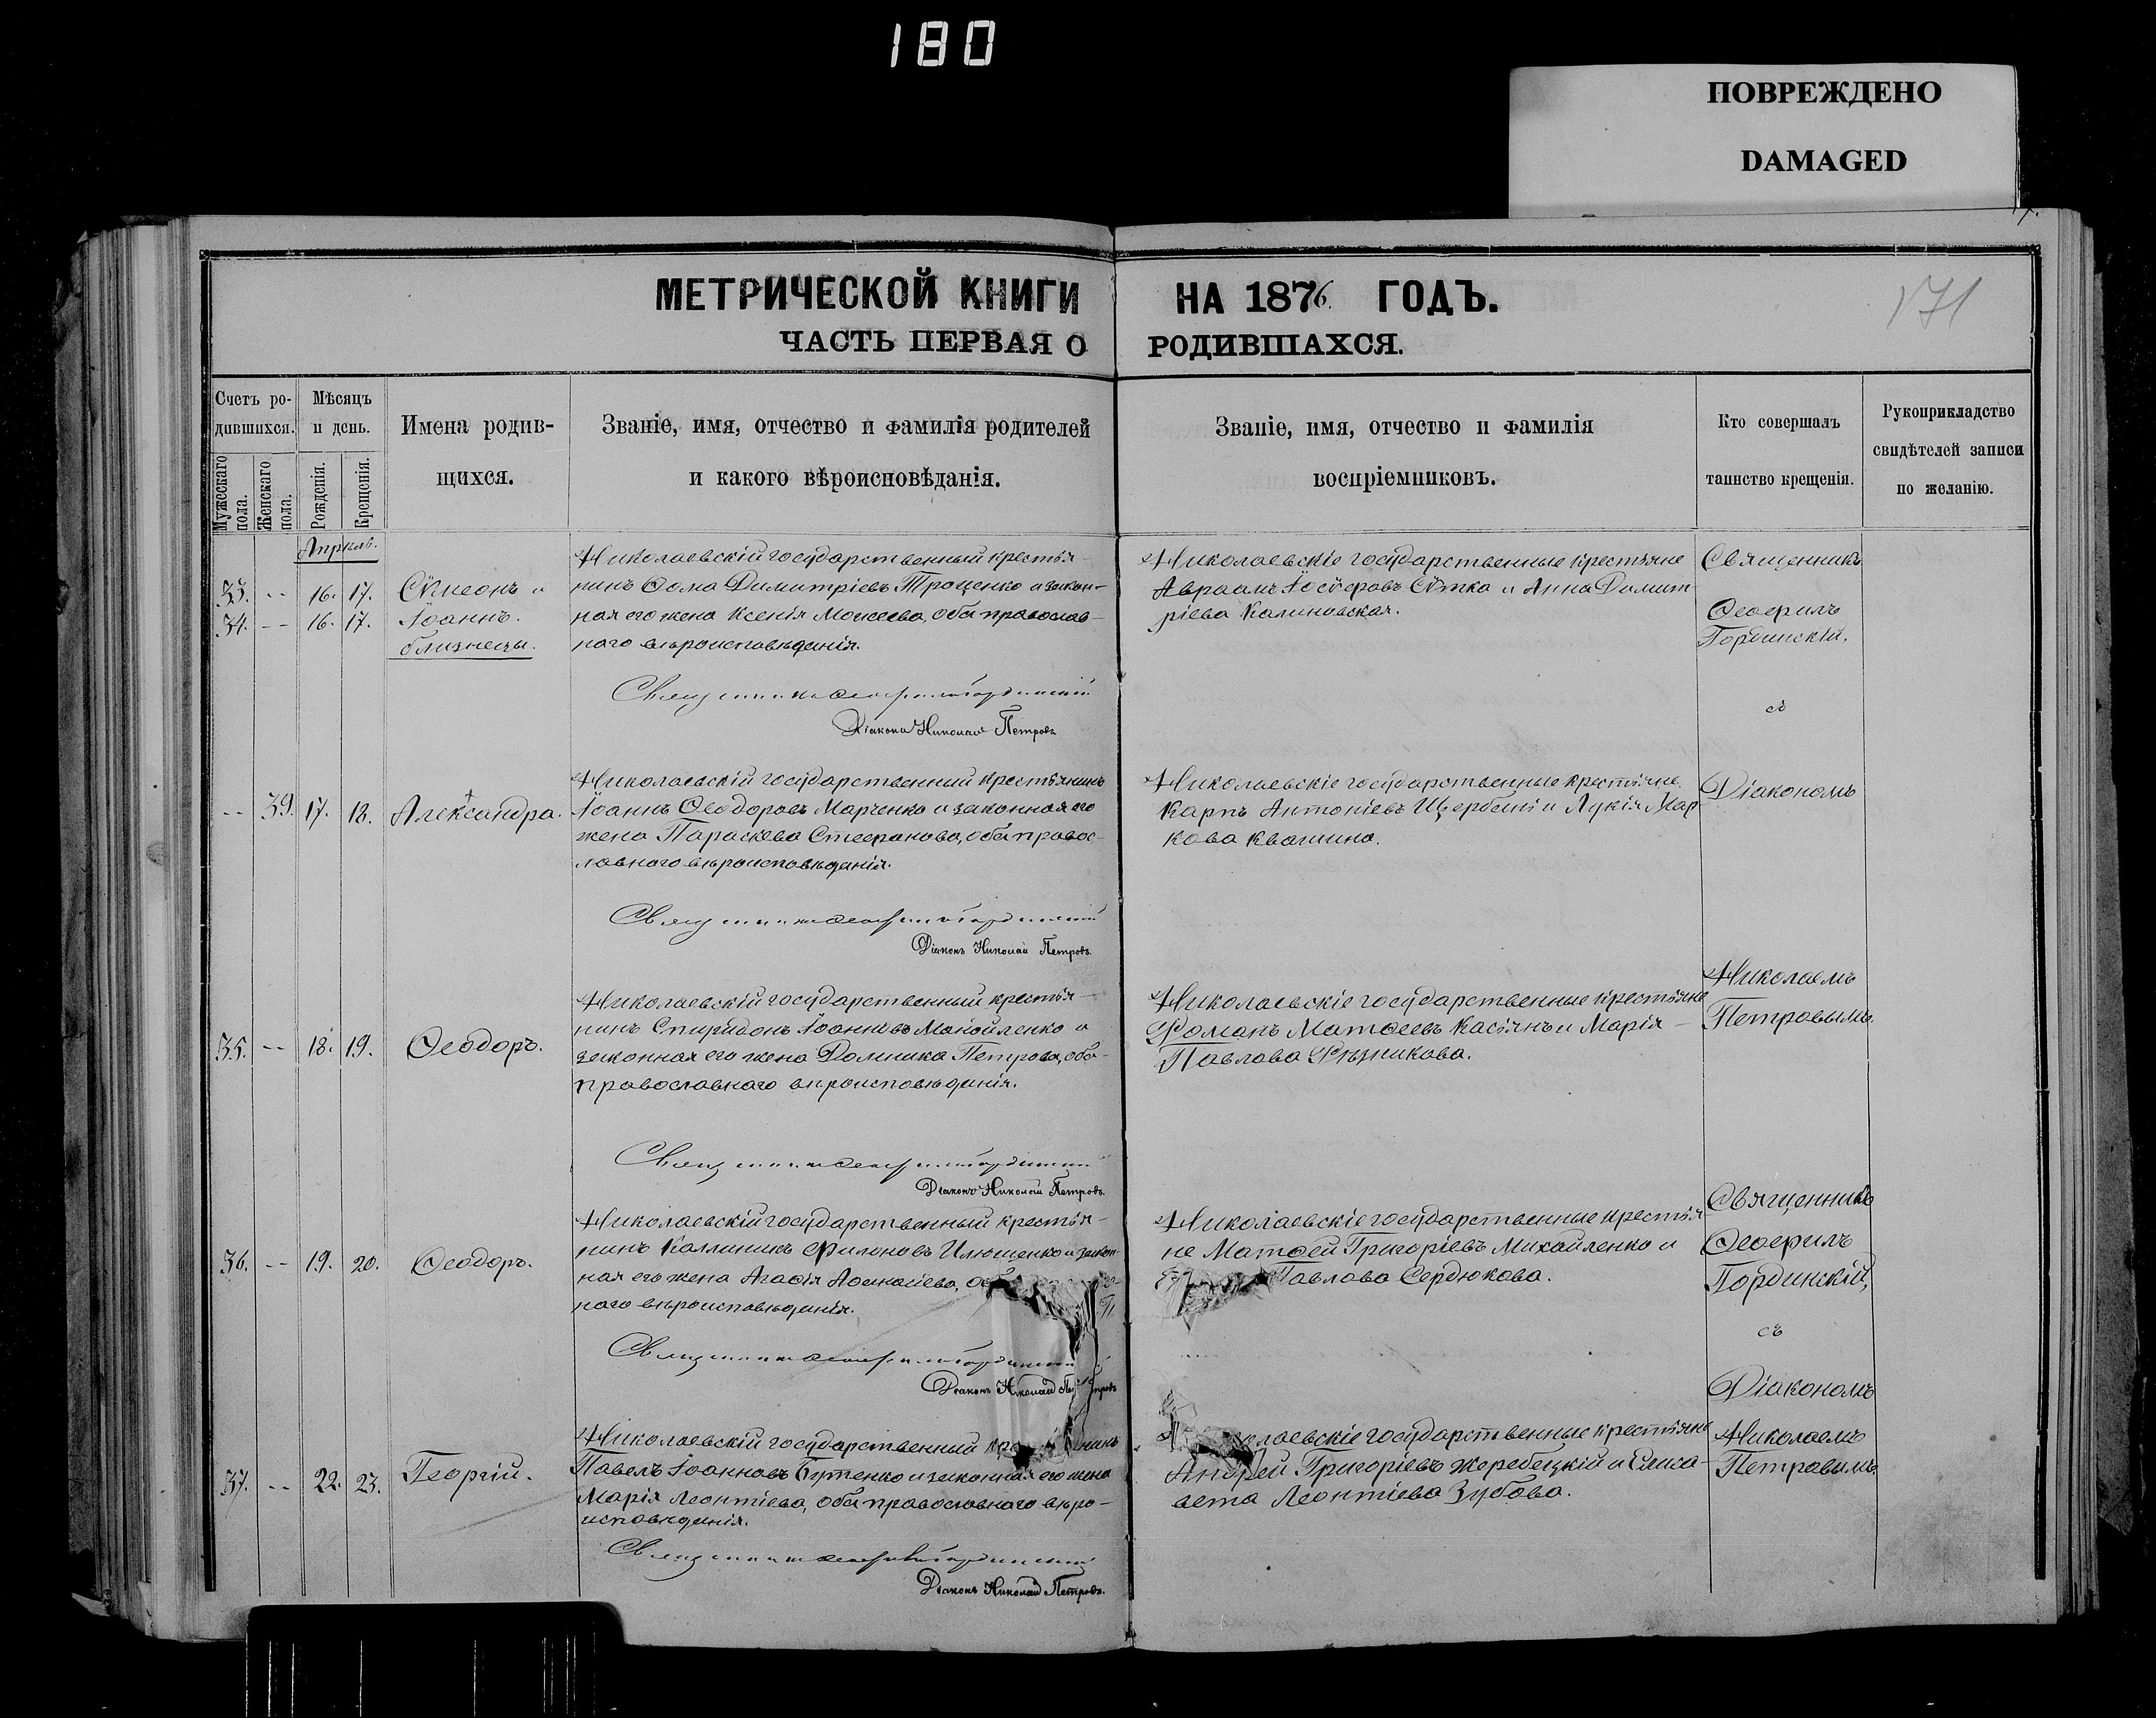 180
ПОВРЕЖДЕНО
DAMAGED
171
МЕТРИЧЕСКОЙ КНИГИ НА 1876 ГОДЪ.
ЧАСТЬ ПЕРВАЯ О РОДИВШАХСЯ.
Счетъ ро-
дившихся.
Мужескаго пола.
Женскаго пола.
Мѣсяцъ
и день.
Рожденія.
Крещенія.
Имена родив-
шихся.
Званіе, имя, отчество и фамилія родителей
и какого вѣроисповѣданія.
Званіе, имя, отчество и фамилія
воспріемниковъ.
Кто совершалъ
таинство крещенія.
Рукоприкладство
свидѣтелей записи
по желанію.
Апрѣль.
33. -- 16. 17. Сѵмеонъ и
34. -- 16. 17. Іоаннъ.
близнецы.
Николаевскій государственный крестья-
нинъ Ѳома Димитріевъ Троценко и закон-
ная его жена Ксенія Моисеева, оба православ-
наго вѣроисповѣданія.
Священникъ Ѳеофилъ Гординскій
Діаконъ Николай Петровъ
Николаевскіе государственные крестьяне
Авраамъ Іосифовъ Сѫтка и Анна Димит
ріева Калиновская.
Священникъ
Ѳеофилъ
Гординскій.
съ
-- 39. 17. 18. Александра.
Николаевскій государственный крестьянинъ
Іоаннъ Ѳеодоровъ Марченко и законная его
жена Параскева Стефанова, оба правос-
лавного вѣроисповѣданія.
Священникъ Ѳеофилъ Гординскій
Діаконъ Николай Петровъ.
Николаевскіе государственные крестьяне
Карпъ Антоніевъ Щербина и Лукія Мар
кова Квашина.
Діакономъ
35. -- 18. 19. Ѳеодоръ.
Николаевскій государственный крестья-
нинъ Спиридонъ Іоанновъ Манойленко и
законная его жена Домника Петрова, оба-
православнаго вѣроисповѣданія.
Священникъ Ѳеофилъ Гординскій
Діаконъ Николай Петровъ.
Николаевскіе государственные крестьяне
Романъ Матѳеевъ Касьянъ и Марія-
Павлова Рѣзникова.
Николаемъ
Петровымъ.
36. -- 19. 20. Ѳеодоръ.
Николаевскій государственный крестья-
нинъ Каллиникъ Филоновъ Илюшенко и закон-
ная его жена Агаѳія Аѳанасіева,
наго вѣроисповѣданія.
Священникъ Ѳеофилъ Гординскій
Діаконъ Николай Петровъ
Николаевскіе государственные крестья
не Матѳей Григоріевъ Михайленко и
Павлова Сердюкова.
Священникъ
Ѳеофилъ
Гординскій,
съ
37. -- 22. 23. Георгій.
Николаевскій государственный
Павелъ Іоанновъ Бутенко и законная его жена
Марія Леонтіева, оба православного вѣро-
исповѣданія.
Священникъ Ѳеофилъ Гординскій
Діаконъ Николай Петровъ.
государственные крестьяне
Андрей Григоріевъ Жеребецкій и Елиса-
вета Леонтіева Зубова.
Діакономъ
Николаемъ
Петровымъ.